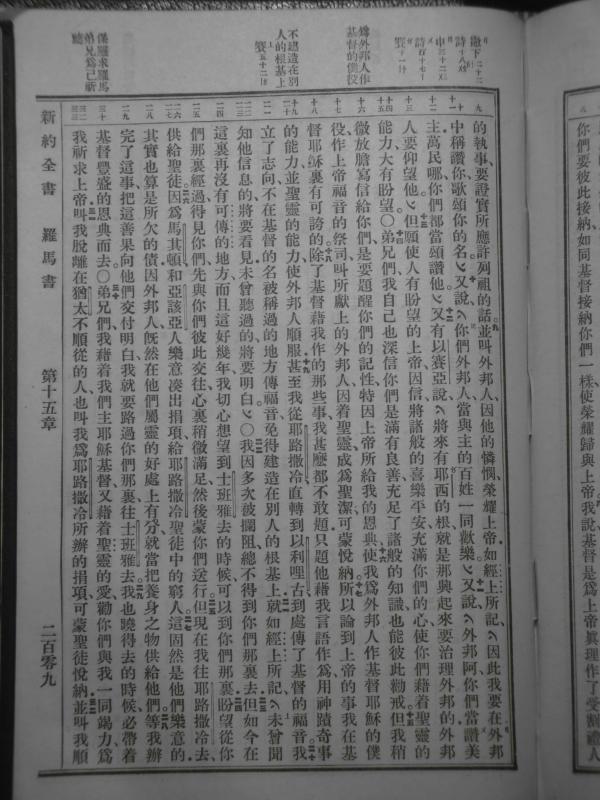 撒下二十二 詩十八 申三十二 詩百十七 賽十一
爲外邦人作基督的僕役
不建造在別人的根基上
賽五十二
保羅求羅馬弟兄爲己祈禱
的執事要證實所應許列祖的話並叫外邦人因他的憐憫榮耀上帝如經上所記因此我要在外邦
中稱讚你歌頌你的名又說你們外邦人當與主的百姓一同歡樂又說外邦阿你們當讚美
主萬民哪你們都當頌讚他又有以賽亞說將來有耶西的根就是那興起來要治理外邦的外邦
人要仰望他但願使人有盼望的上帝因信將諸般的喜樂平安充滿你們的心使你們藉着聖靈的
能力大有盼望〇弟兄們我自己也深信你們是滿有良善充足了諸般的知識也能彼此勸戒但我稍
微放膽寫信給你們是要題醒你們的記性特因上帝所給我的恩典使我爲外邦人作基督耶穌的僕
役作上帝福音的祭司叫所獻上的外邦人因着聖靈成爲聖潔可蒙悅納所以論到上帝的事我在基
督耶穌裏有可誇的除了基督藉我作的那些事我甚麽都不敢題只題他藉我言語作爲用神蹟奇事
的能力並聖靈的能力使外邦人順服甚至我從耶路撒冷直轉到以利哩古到處傳了基督的福音我
立了志向不在基督的名被稱過的地方傳福音免得建造在別人的根基上就如經上所記未曾聞
知他信息的將要看見未曾聽過的將要明白〇我因多次被攔阻總不得到你們那裏去但如今在
這裏再沒有可傳的地方而且這好幾年我切心想望到士班雅去的時候可以到你們那裏盼望從你
們那裏經過得見你們先與你們彼此交往心裏稍微滿足然後蒙你們送行但現在我往耶路撒冷去
供給聖徒因爲馬其頓和亞該亞人樂意湊出捐項給耶路撒冷聖徒中的窮人這固然是他們樂意的
其實也算是所欠的債因外邦人旣然在他們屬靈的好處上有分就當把養身之物供給他們等我辦
完了這事把這善果向他們交付明白我就要路過你們那裏往士班雅去我也曉得去的時候必帶着
基督豐盛的恩典而去〇弟兄們我藉着我們主耶穌基督又藉着聖靈的愛勸你們與我一同竭力爲
我祈求上帝叫我脫離在猶太不順從的人也叫我爲耶路撒冷所辦的捐項可蒙聖徒悅納並叫我順
新約全書 羅馬書 第十五章 二百零九
你們要彼此接納如同基督接納你們一樣使榮耀歸與上帝我說基督是爲上帝眞理作了受割禮人